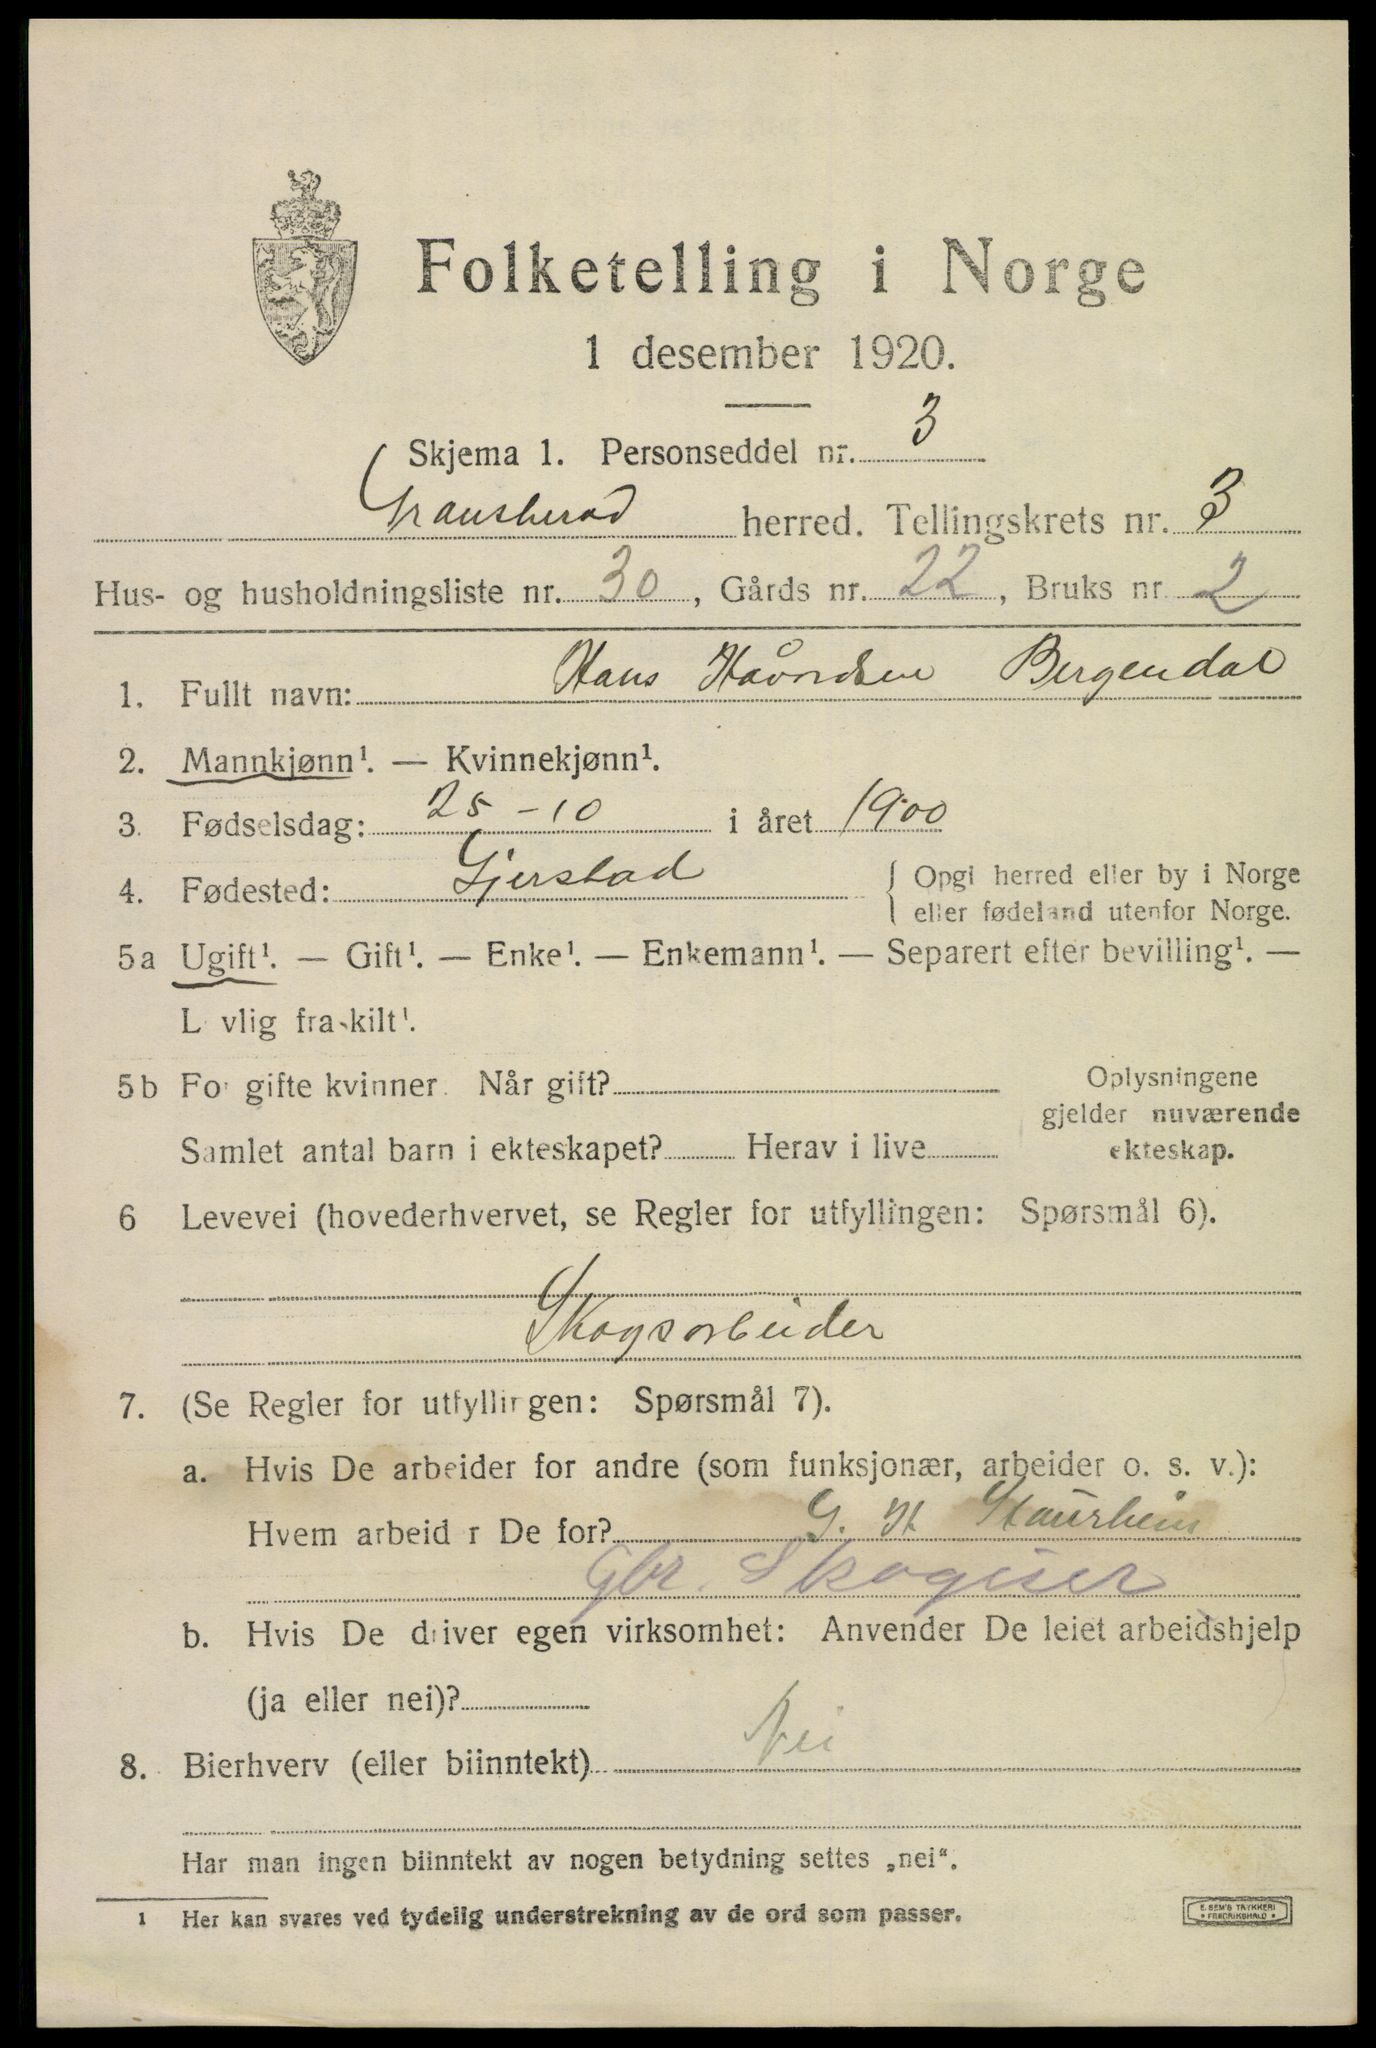 Folketelling i Norge
1 desember 1920.
Skjema 1. Personseddel nr. 3
Gransherad herred. Tellingskrets nr. 3
Hus- og husholdningsliste nr. 30, Gårds nr. 22, Bruks nr 2
1. Fullt navn: Hans Håvordsen Bergendal
2. Mannkjønn¹. — Kvinnekjønn¹.
3. Fødselsdag: 25-10 i året 1900
4. Fødested: Gjerstad { Opgi herred eller by i Norge
eller fødeland utenfor Norge.
5a Ugift¹. — Gift¹. — Enke¹. — Enkemann¹. — Separert efter bevilling¹. —
L vlig fraskilt¹.
5b For gifte kvinner. Når gift?
Samlet antal barn i ekteskapet? Herav i live
Oplysningene
gjelder nuværende
ekteskap.
6 Levevei (hovederhvervet, se Regler for utfyllingen: Spørsmål 6).
Skogsarbeider
7. (Se Regler for utfyllingen: Spørsmål 7).
a. Hvis De arbeider for andre (som funksjonær, arbeider o. s. v.):
Hvem arbeid r De for? G. H Staurheim
Gbr. Skogeier
b. Hvis De driver egen virksomhet: Anvender De leiet arbeidshjelp
(ja eller nei)?
8. Bierhverv (eller biinntekt) Nei
Har man ingen biinntekt av nogen betydning settes „nei“.
1 Her kan svares ved tydelig understrekning av de ord som passer.
E. SEM'S TRYKKERI
• FREDRIKSHALD •